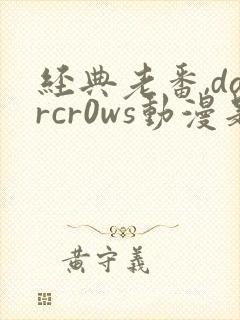 經典老番,do
rcr0ws動漫
黃守義